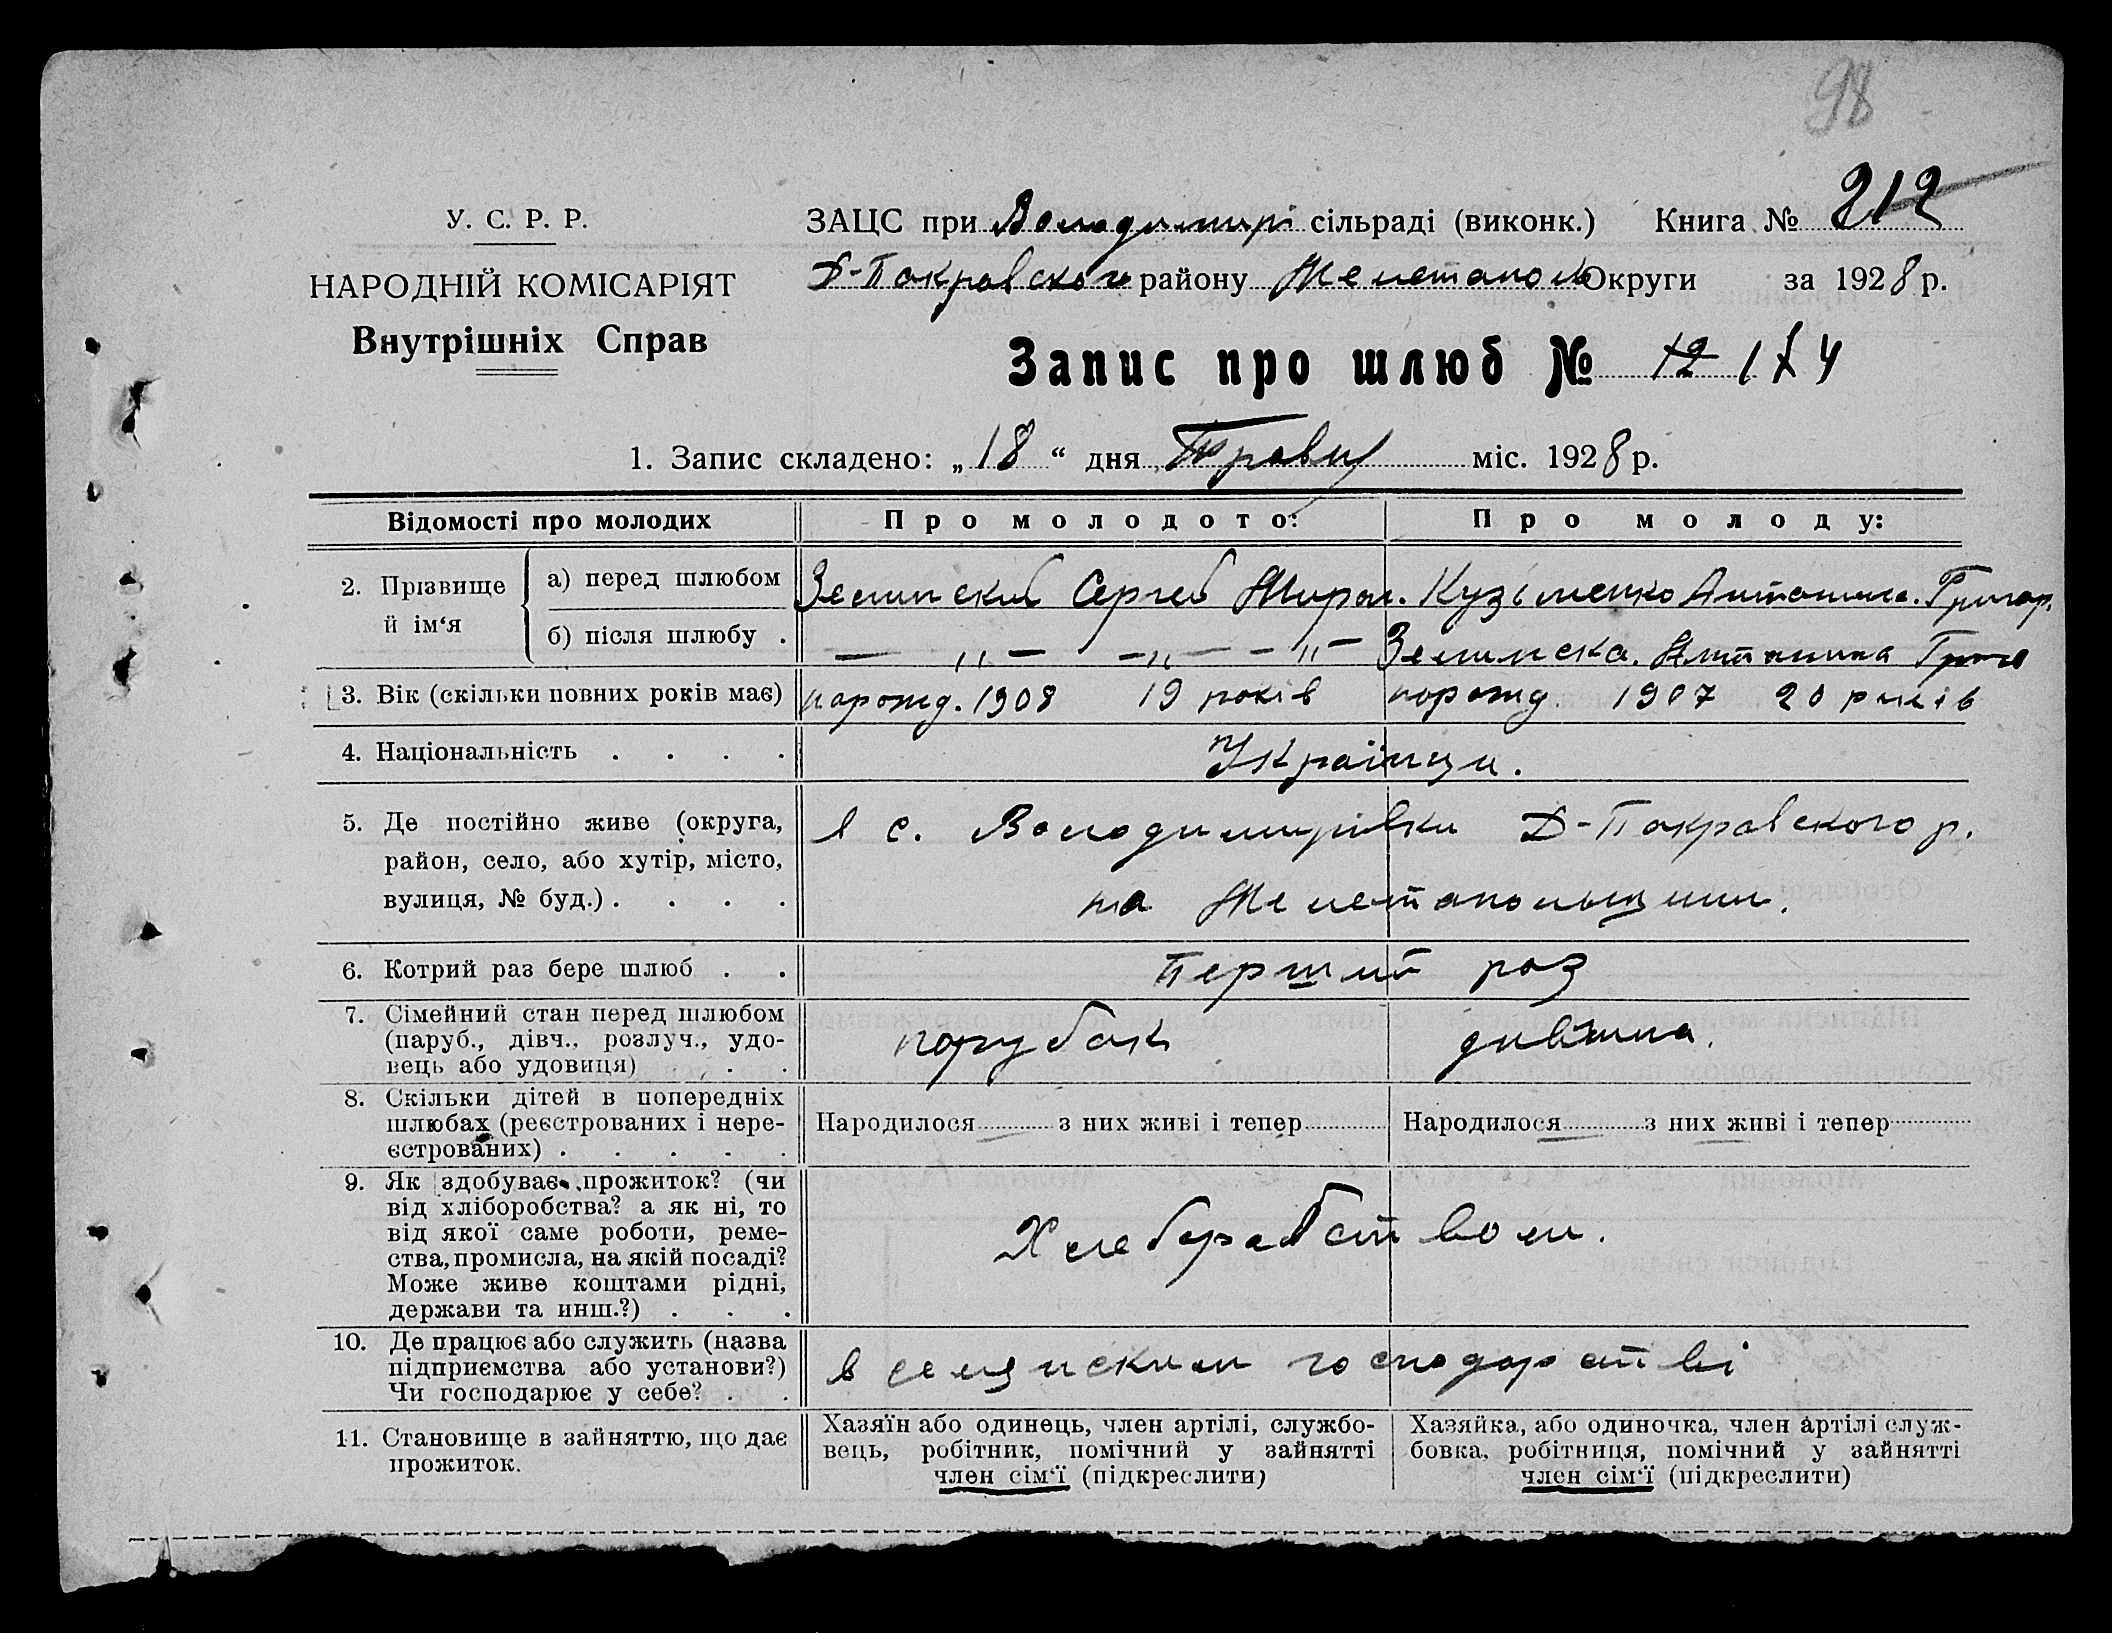 98
У. С. Р. Р.
НАРОДНІЙ КОМІСАРІЯТ
Внутрішніх Справ
ЗАЦС при Володимирі сільраді (виконк.) Книга № 212
Д-Покравского району Мелетополь Округи за 1928 р.
Запис про шлюб № 12 174
1. Запис складено: „18“ дня Травн міс. 1928 р.
Відомості про молодих Про молодого: Про молоду:
2. Прізвище й ім‘я
а) перед шлюбом Зелински Сергей Миров. Кузьменко Антонина. Григор.
б) після шлюбу . — „ — — „ — — „ — Зелинска. Антонина Григо
3. Вік (скільки повних років має) народ. 1908 19 років народ. 1907 20 років
4. Національність . . . . Українци.
5. Де постійно живе (округа, район, село, або хутір, місто, вулиця, № буд.) . . . .
в с. Володимирівки Д-Покравского р.
на Мелетопольщини.
6. Котрий раз бере шлюб . . Перший раз
7. Сімейний стан перед шлюбом (паруб., дівч., розлуч., удовець або удовиця) . . парубак дивчина.
8. Скільки дітей в попередніх шлюбах (реєстрованих і нереєстрованих) . . . . .
Народилося — з них живі і тепер Народилося — з них живі і тепер
9. Як здобуває прожиток? (чи від хліборобства? а як ні, то від якої саме роботи, ремества, промисла, на якій посаді? Може живе коштами рідні, держави та инш.?) . . .
Хлебарабством.
10. Де працює або служить (назва підприємства або установи?) Чи господарює у себе? . .
в селянским господарстві
11. Становище в зайняттю, що дає прожиток.
Хазяїн або одинець, член артілі, службовець, робітник, помічний у зайнятті член сім‘ї (підкреслити)
Хазяйка, або одиночка, член артілі службовка, робітниця, помічний у зайнятті член сім‘ї (підкреслити)